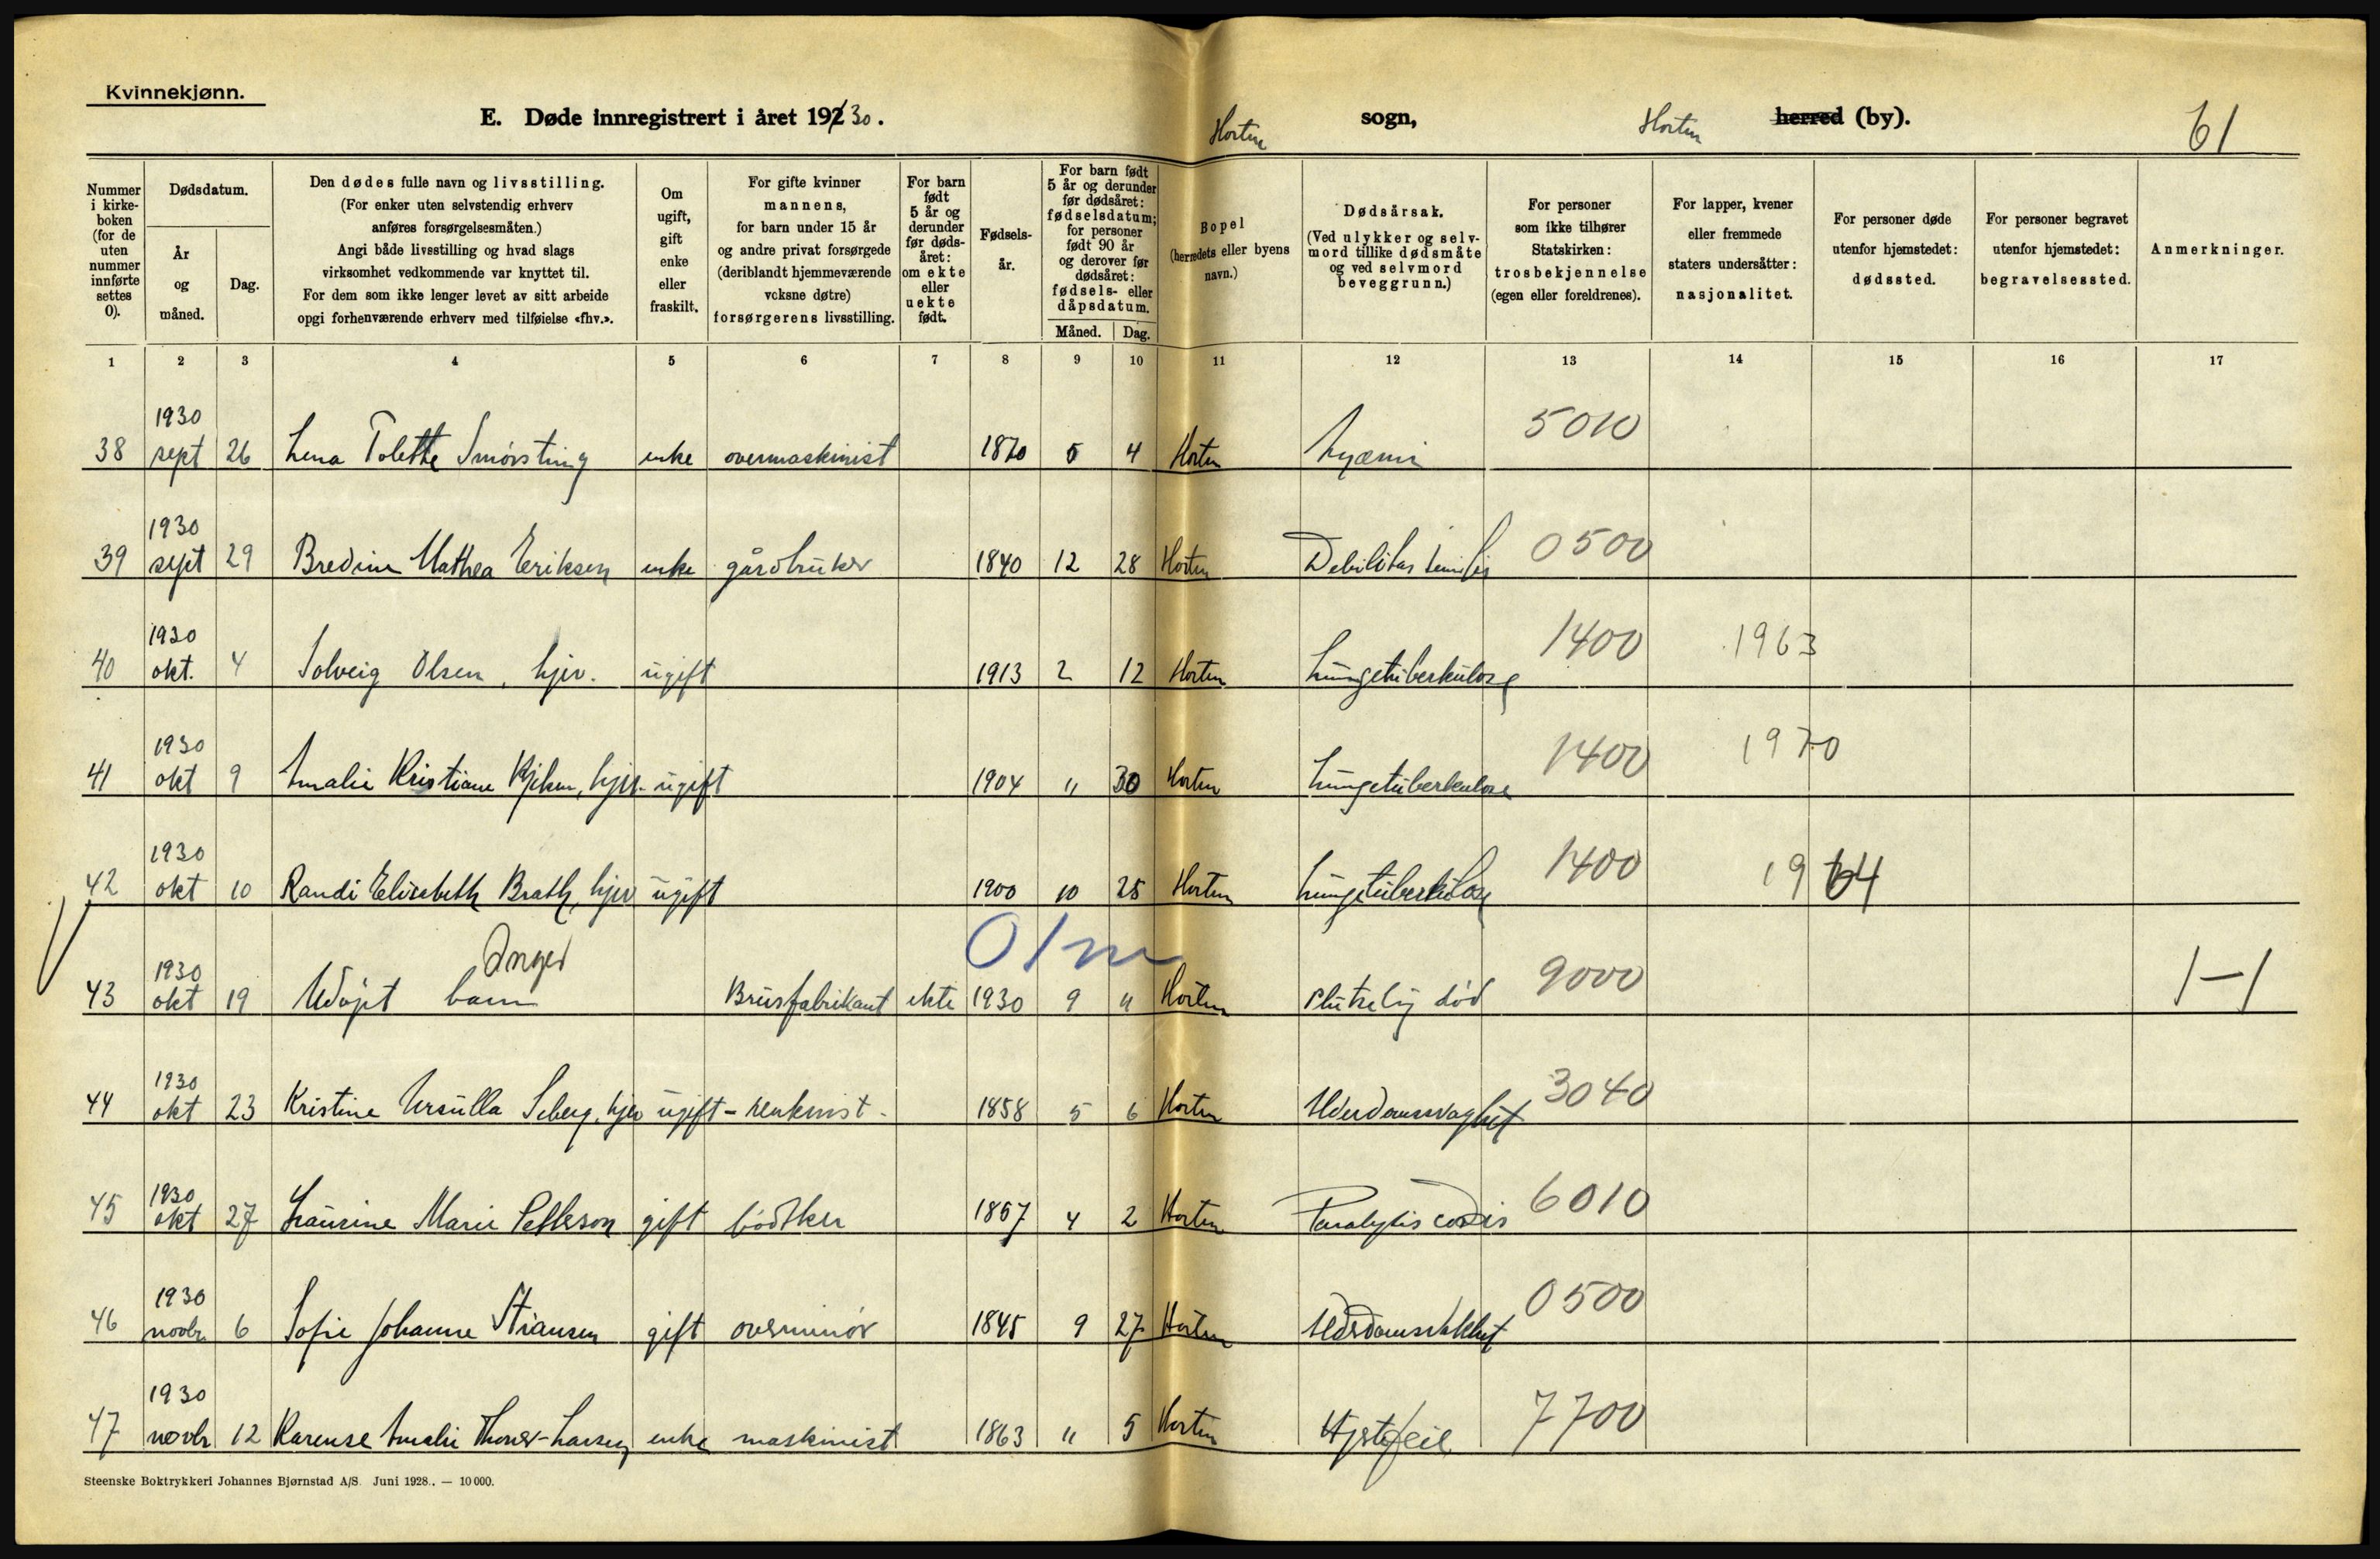 Kvinnekjønn.
E. Døde innregistrert i året 192 30. Horten sogn, Horten herred (by). 61
Nummer i kirkeboken (for de uten nummer innførte settes 0).
Dødsdatum.
År og måned.
Dag.
Den dødes fulle navn og livsstilling.
(For enker uten selvstendig erhverv
anføres forsørgelsesmåten.)
Angi både livsstilling og hvad slags
virksomhet vedkommende var knyttet til.
For dem som ikke lenger levet av sitt arbeide
opgi forhenværende erhverv med tilføielse «fhv.».
Om ugift, gift enke eller fraskilt.
For gifte kvinner
mannens,
for barn under 15 år
og andre privat forsørgede
(deriblandt hjemmeværende
voksne døtre)
forsørgerens livsstilling.
For barn født 5 år og derunder før dødsåret: om ekte eller uekte født.
Fødselsår.
For barn født 5 år og derunder før dødsåret: fødselsdatum; for personer født 90 år og derover før dødsåret: fødsels- eller dåpsdatum.
Måned. Dag.
Bopel
(herredets eller byens
navn.)
Dødsårsak.
(Ved ulykker og selvmord tillike dødsmåte
og ved selvmord
beveggrunn.)
For personer
som ikke tilhører
Statskirken:
trosbekjennelse
(egen eller foreldrenes).
For lapper, kvener
eller fremmede
staters undersåtter:
nasjonalitet.
For personer døde
utenfor hjemstedet:
dødssted.
For personer begravet
utenfor hjemstedet:
begravelsessted.
Anmerkninger.
1 2 3 4 5 6 7 8 9 10 11 12 13 14 15 16 17
38 1930 sept 26 Lena Tolette Smørsting enke overmaskinist 1870 5 4 Horten 5010
39 1930 sept 29 Bredine Mathea Eriksen enke gårdbruker 1840 12 28 Horten Debilitas senilis 0500
40 1930 okt. 4 Solveig Olsen, hjv. ugift 1913 2 12 Horten Lungetuberkulose 1400 1963
41 1930 okt 9 Amalie Kristiane hjv. ugift 1904 11 30 Horten Lungetuberkulose 1400 1970
42 1930 okt 10 Randi Elisabeth Brath, hjv ugift 1900 10 25 Horten Lungetuberkulose 1400 1964
Inger 01m
43 1930 okt 19 Udøpt barn Brusfabrikant ekte 1930 9 11 Horten plutselig død 9000 1-1
44 1930 okt 23 Kristine Ursulla Seberg, hjv ugift - 1858 5 6 Horten Alderdomssvaghet 3040
45 1930 okt 27 Laurine Marie Petterson gift bødtker 1867 4 2 Horten Paralysis cordis 6010
46 1930 novbr 6 Sofie Johanne Stiansen gift overminør 1845 9 27 Horten 0500
47 1930 novbr 12 Karense Amalie Larsen enke maskinist 1863 11 5 Horten Hjertefeil 7700
Steenske Boktrykkeri Johannes Bjørnstad A/S. Juni 1928. — 10 000.